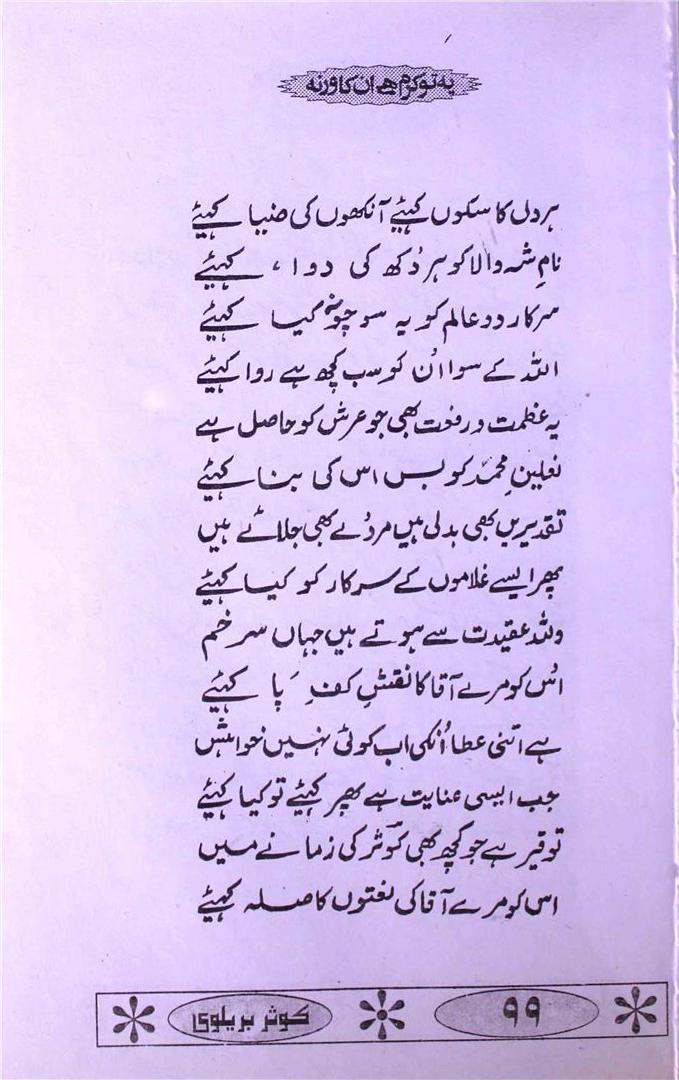 یہ تو کرم ہے ان کا ورنہ
ہر دل کا سکوں کہیٔے آنکھوں کی ضیا کہیٔے
نامِ شہ والا کو ہر دُکھ کی دوا، کہیٔے
سرکار دو عالم کو یہ سوچوٗنہ کیا کہیٔے
اللہ کے سوا اُن کو سب کچھ ہے روا کہیٔے
یہ عظمت و رفعت بھی جو عرش کو حاصل ہے
نعلینِ محمدؐ کو بس اس کی بنا کہیٔے
تقدیریں بھی بدلی ہیں مردُے بھی جلائے ہیں
پھر ایسے غلاموں کے سرکار کو کیا کہیٔے
وللہ عقیدت سے ہوتے ہیں جہاں سر خم
اُس کو مرے آقا کا نقشِ کفِ پا کہیٔے
ہے اتنی عطا اُنکی اب کوئی نہیں خواہش
جب ایسی عنایت ہے پھر کہیٔے تو کیا کہیٔے
توقیر ہے جو کچھ بھی کوثرؔ کی زمانے میں
اس کو مرے آقا کی نعتوں کا صلہ کہیٔے
۹۹
کوثر بریلوی